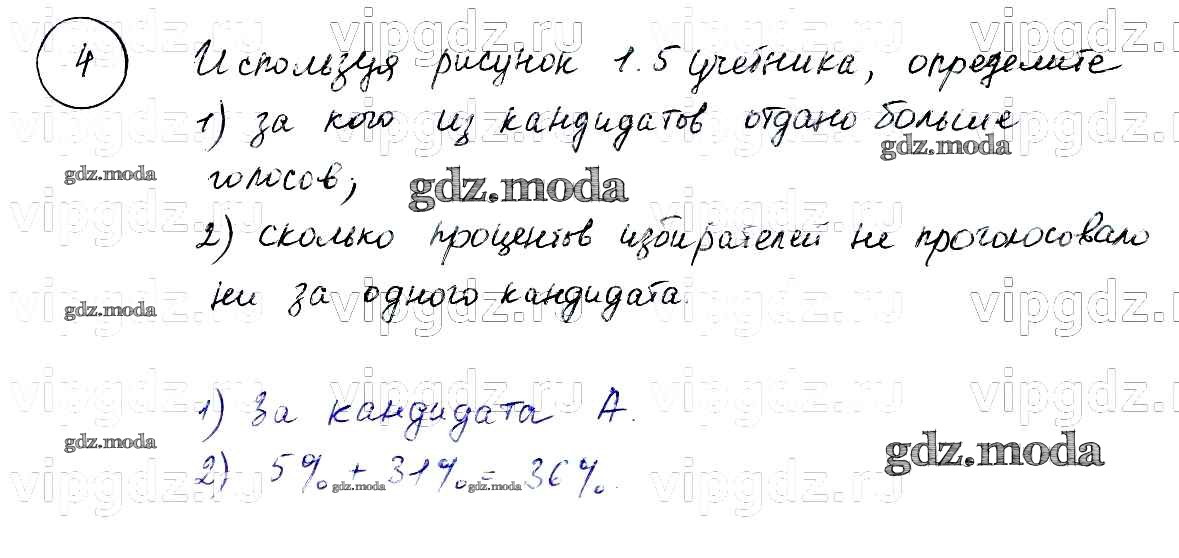 4 Используя рисунок 1.5 учебника, определите
1) за кого из кандидатов отдано больше
голосов;
2) сколько процентов избирателей не проголосовало
ни за одного кандидата.
1) За кандидата А.
2) 5% + 31% = 36%.
vipgdz.ru
gdz.moda